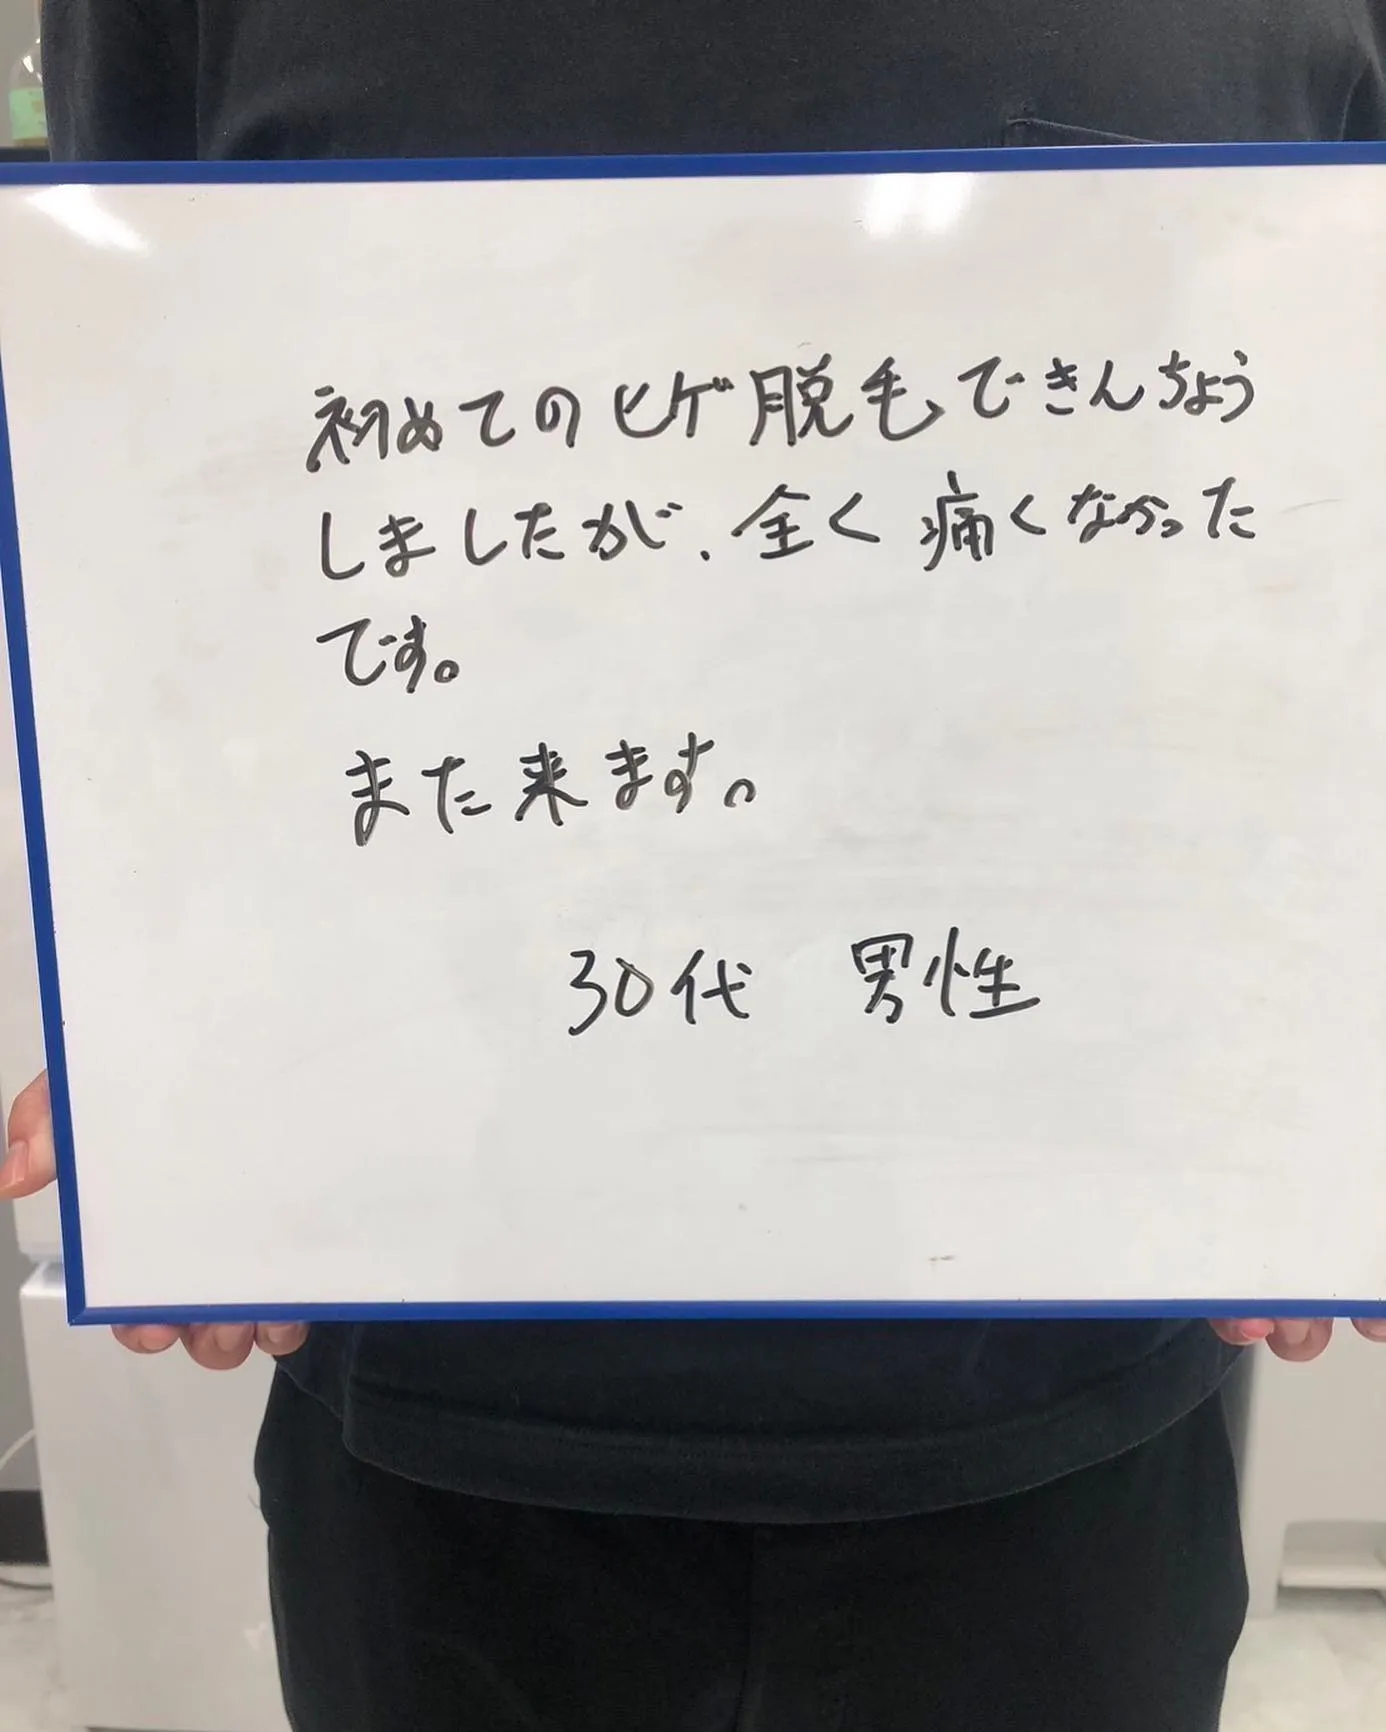 初めてのヒゲ脱毛できんちょう
しましたが、全く痛くなかった
です。
また来ます。
30代 男性